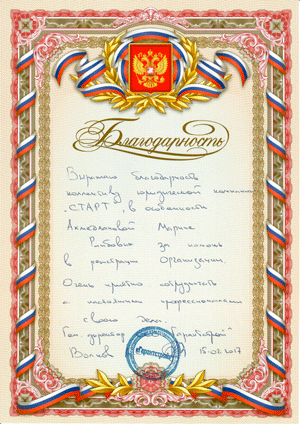 Благодарность
Выражаю благодарность
коллективу юридической компании
"СТАРТ", в особенности
Марине
за помощь
в регистрации Организации.
Очень приятно сотрудничать
с настоящими профессионалами
своего дела.
Ген. директор
Волков 15.02.2017